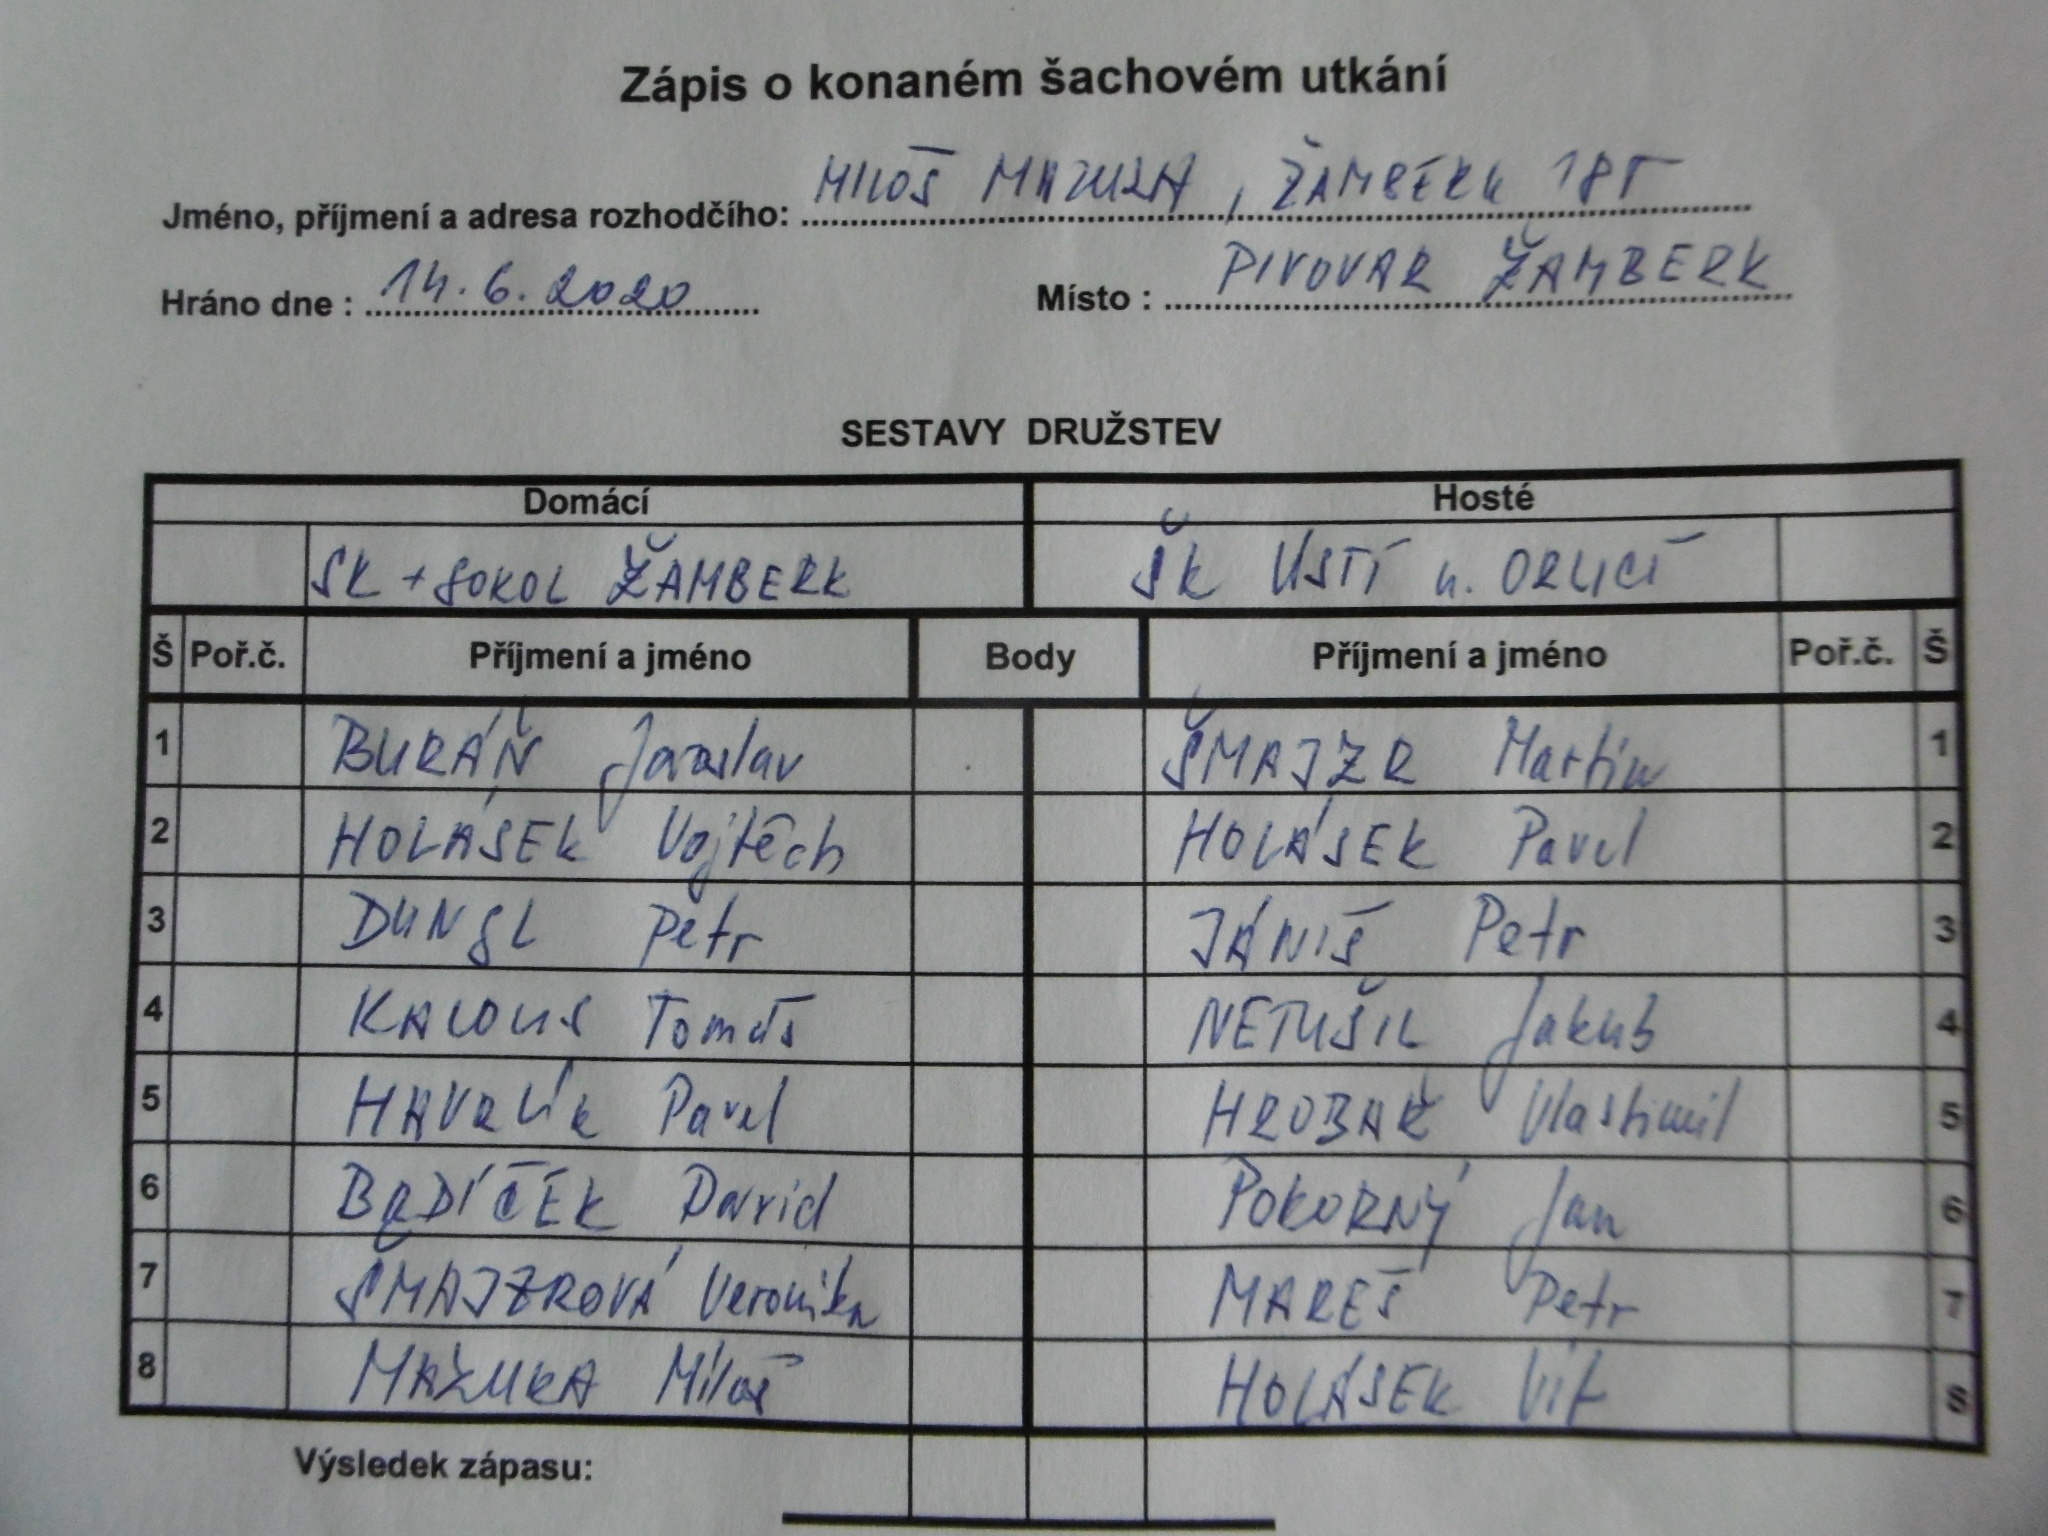 Zápis o konaném šachovém utkání
Jméno, příjmení a adresa rozhodčího: MILOŠ MAZURA, ŽAMBERK
Hráno dne : 14.6.2020 Místo : PIVOVAR ŽAMBERK
SESTAVY DRUŽSTEV
Domácí Hosté
SK + SOKOL ŽAMBERK ŠK ÚSTÍ n. ORLICÍ
Š Poř.č. Příjmení a jméno Body Příjmení a jméno Poř.č. Š
1 BURÁŇ Jaroslav ŠMAJZR Martin 1
2 HOLÁSEK Vojtěch HOLÁSEK Pavel 2
3 DUNGL Petr JÁNIŠ Petr 3
4 KALOUS Tomáš NETUŠIL Jakub 4
5 HAVRLÍK Pavel Vlastimil 5
6 David POKORNÝ Jan 6
7 ŠMAJZROVÁ Veronika MAREŠ Petr 7
8 Miloš HOLÁSEK Vít 8
Výsledek zápasu: